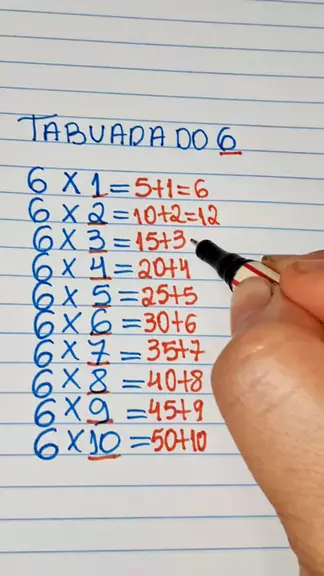 TABUADA DO 6
6 X 1 = 5+1=6
6 X 2 = 10+2=12
6 X 3 = 15+3
6 X 4 = 20+4
6 X 5 = 25+5
6 X 6 = 30+6
6 X 7 = 35+7
6 X 8 = 40+8
6 X 9 = 45+9
6 X 10 = 50+10